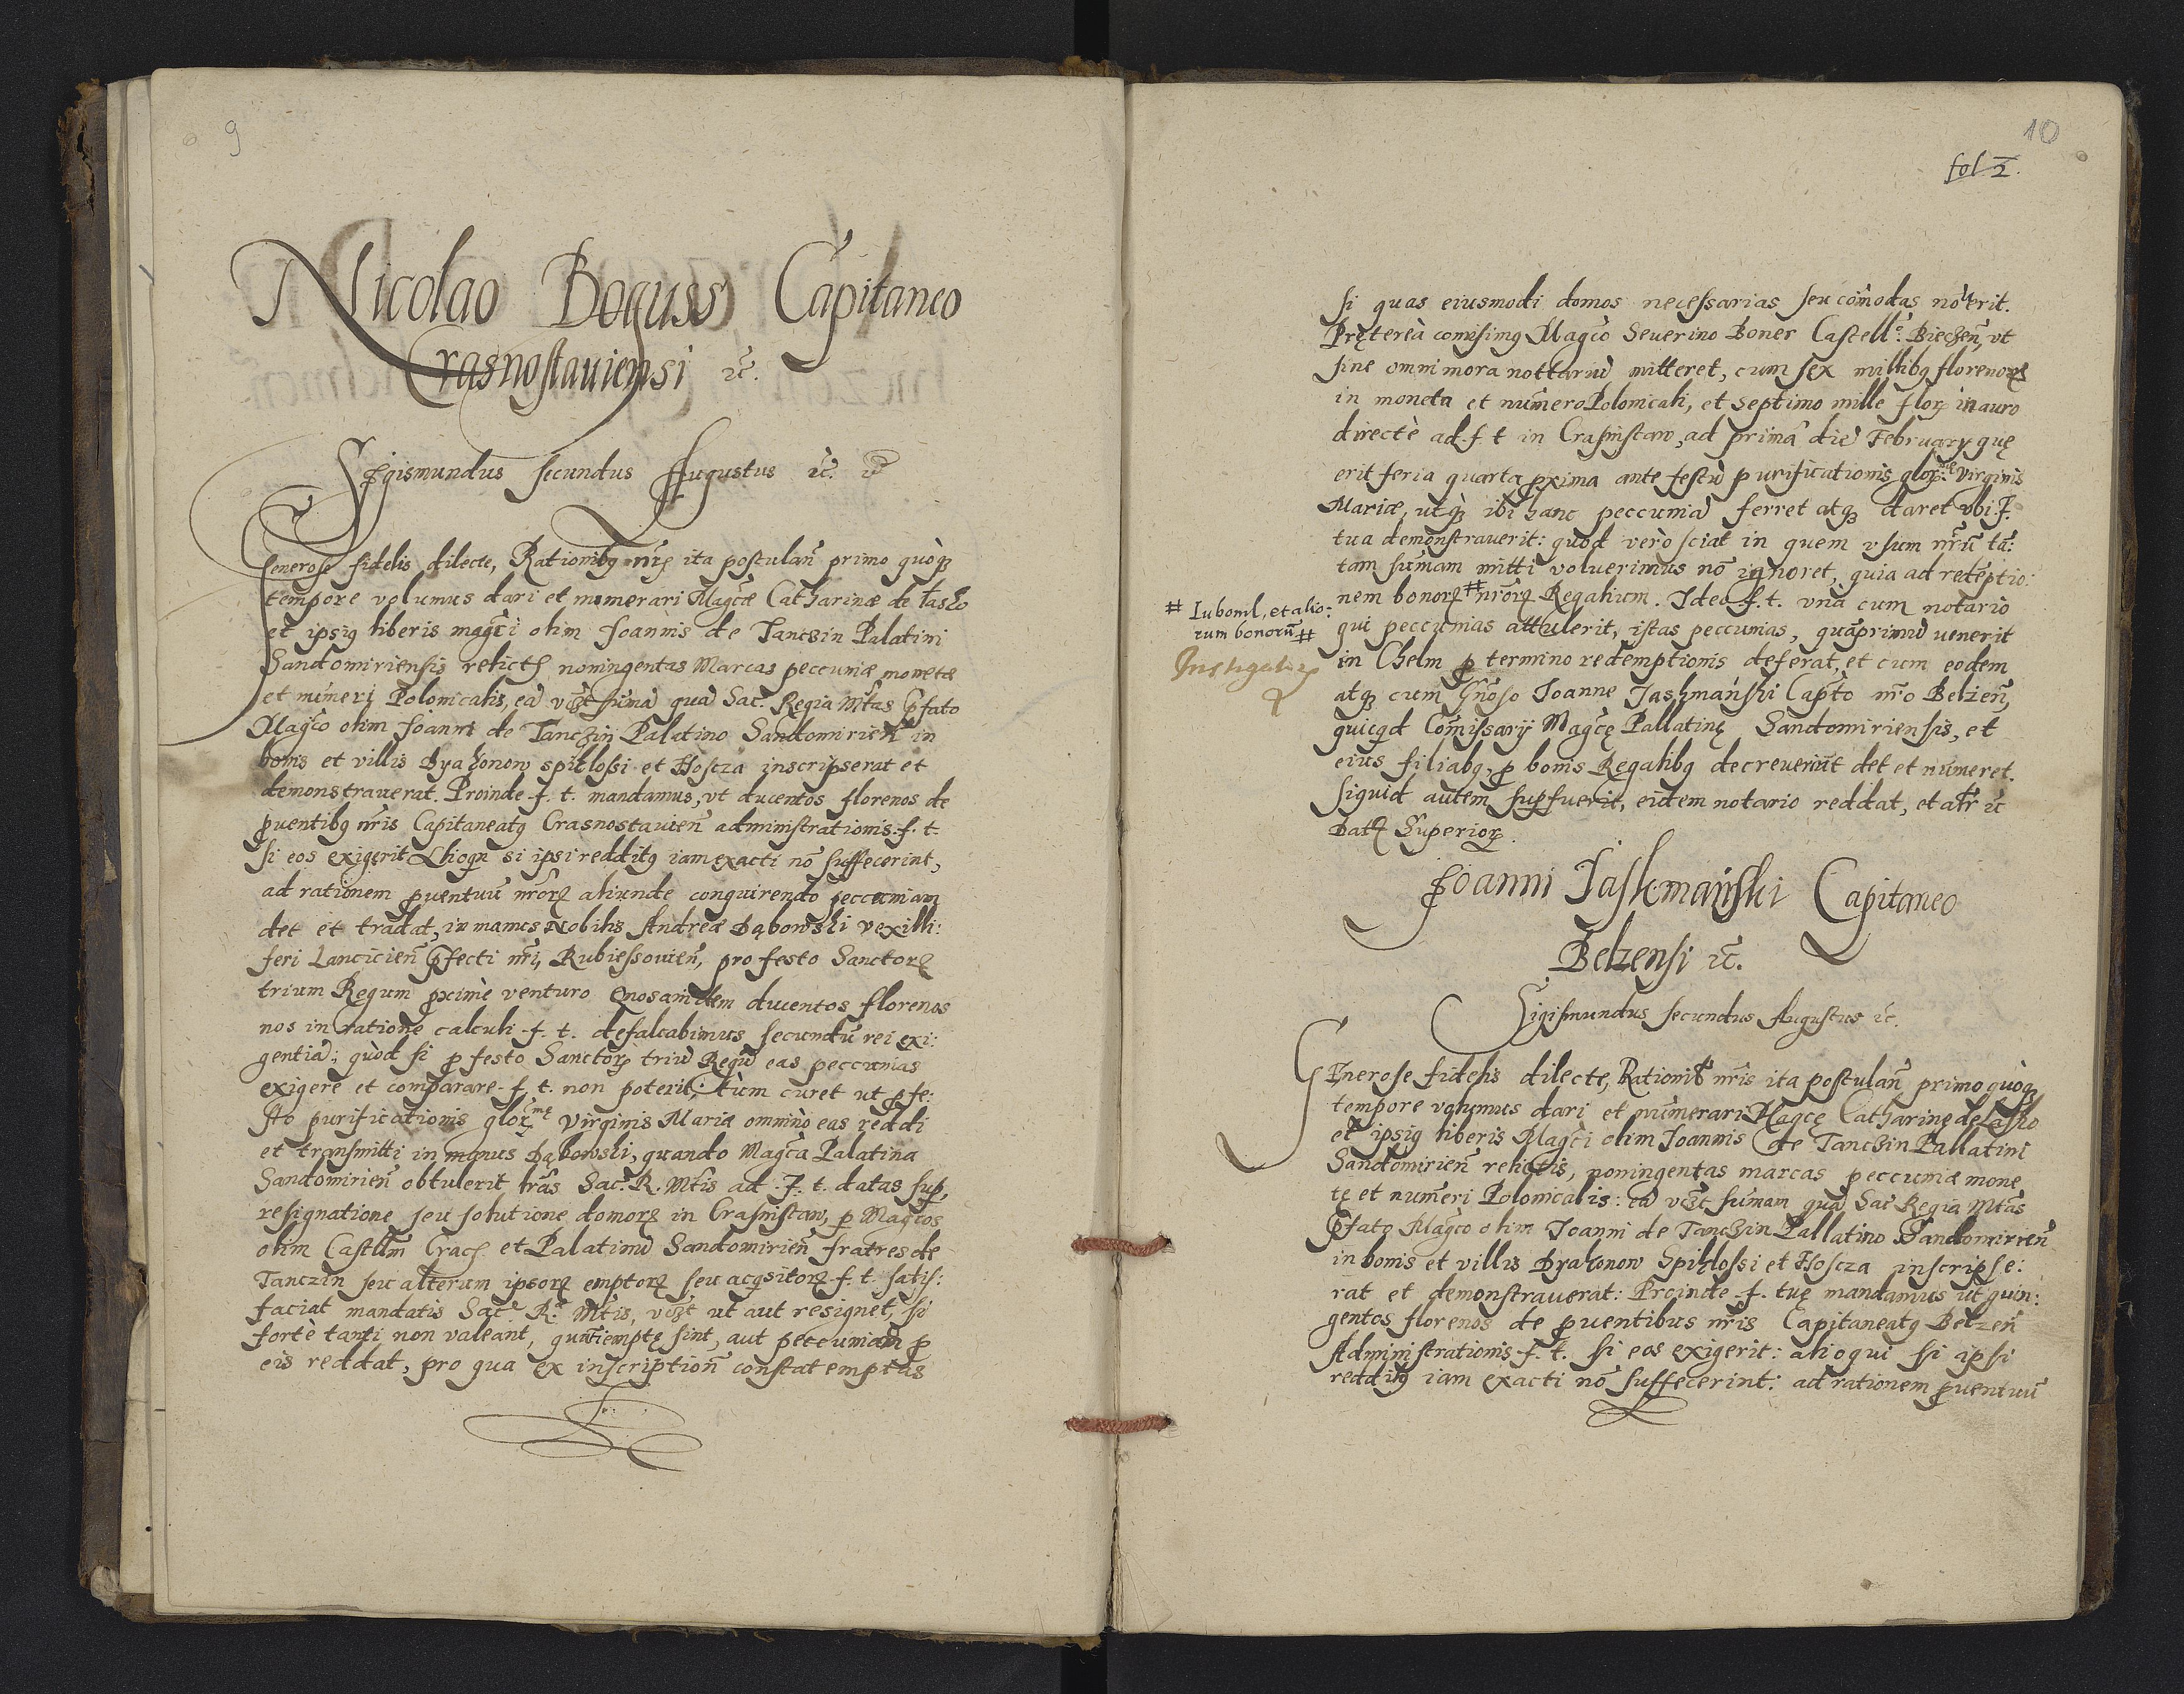 9
Nicolao Boguss Capitaneo
Crasnostauiensi ꝛc̃.
Sigismundus secundus Augustus ꝛc̃. ꝛc̃
Generose fidelis dilecte, Rationibꝰ nr̃is ita postulañ primo quòqꝫ
tempore volumus dari et numerari Magc̃æ Catharinæ de Łasko
et ipsiꝰ liberis magc̃i olim Joannis de Tanczin Palatini
Sandomiriensis relictꝭ noningentas Marcas peccuniæ monetæ
et numeri Polonicalis, eã vꝫt sum̃ã quã Sac. Regia Mt̃as p̃fato
Magc̃o olim Joanni de Tanczin Palatino Sandomirieñ in
bonis et villis Dyakonow spiklossi et Hoscza inscripserat et
demonstrauerat. Proinde f. t. mandamus, vt ducentos florenos de
ꝓuentibꝰ nr̃is Capitaneatꝰ Crasnostauieñ administrationis f. t.
si eos exigerit Alioqñ si ipsi redditꝰ iam exacti nõ suffecerint,
ad rationem ꝓuentuũ nr̃orꝝ aliunde conquirendo peccuniam
det et tradat, in manus Nobilis Andreæ Dąbowski vexilli:
feri Lancicieñ p̃fecti nr̃i, Rubiessouieñ, pro festo Sanctorꝝ
trium Regum ꝓximè venturo Quosquidem ducentos florenos
nos in ratione calculi f. t. defalcabimus secundũ rei exi:
gentiã: quòd si ꝓ festo Sanctorꝝ triũ Regũ eas peccunias
exigere et comparare f. t. non poterit; tùm curet ut ꝓ fe:
sto purificationis glorᵐᵉ Virginis Mariæ omninò eas reddi
et transmitti in manus Dąbowski, quando Magc̃a Palatina
Sandomirieñ obtulerit lr̃as Sac. R. Mt̃is ad f. t. datas suꝑ
resignatione seu solutione domorꝝ in Crasnistaw, ꝑ Magc̃os
olim Castellm̃ Cracꝭ et Palatinũ Sandomirieñ fratres de
Tanczin seu alterum ipsorꝝ emptorꝝ seu acq̃sitorꝝ f. t. satis:
faciat mandatis Sacᵉ Rᵉ Mt̃is, vꝫt ut aut resignet, si
fortè tanti non valeant, quanti emptę sint, aut peccuniam ꝓ
eis reddat, pro qua ex inscriptioñ constat emptas
10
fol 2.
si quas eiusmodi domos necessarias seu com̃odas nouerit.
Pręterea comisimꝰ Magc̃o Seuerino Boner Castellᵒ: Biecheñ, vt
sine omni mora nottariũ mitteret, cum sex millibꝰ florenorꝝ
in moneta et numero Polonicali, et septimo mille florꝝ in auro
directè ad f. t in Crasnistaw, ad primã diẽ February quę
erit feria quarta ꝓxima ante festũ purificationis glorᵐᵉ: Virginis
Mariæ, utqꝫ ibi hanc peccuniã ferret atqꝫ daret vbi f.
tua demonstrauerit: quòd verò sciat in quem vsum nr̃ũ tã:
tam sum̃am mitti voluerimus nõ ignoret, quia ad redẽptio:
nem bonorꝝ # nr̃orꝝ Regalium. Ideo f. t. vna cum notario
# Iuboml, et alio:
rum bonorũ #
qui peccunias attulerit, istas peccunias, quãprimũ uenerit
in Chelm ꝓ termino redemptionis deferat, et cum eodem
atqꝫ cum Gñoso Joanne Jaskmański Capt̃o nr̃o Belzeñ,
quicq̃d Com̃issarij Magc̃ę Pallatinę Sandomiriensis, et
eius filiabꝰ, ꝓ bonis Regalibꝰ decreuerint det et numeret.
Siquid autem suꝑfuerit, eidem notario reddat, et alr̃ ꝛc̃
Datꝭ Superiorꝝ.
Joanni Jaskmański Capitaneo
Belzensi ꝛc̃.
Sigismundus secundus Augustus ꝛc̃.
GEnerose fidelis dilecte, Rationibꝰ nr̃is ita postulañ primo quòqꝫ
tempore volumus dari et numerari Magcę Catharinę de Lasko
et ipsiꝰ liberis Magc̃i olim Joannis de Tanczin Pallatini
Sandomirieñ relictis, noningentas marcas peccuniæ mone
tę et numeri Polonicalis: eã vꝫt sum̃am quã Sac Regia Mt̃as
p̃fato Magc̃o olim Joanni de Tanczin Pallatino Sandomirieñ
in bonis et villis Dyakonow Spiklossi et Hoscza inscripse:
rat et demonstrauerat: Proinde f. tuę mandamus ut quin:
gentos florenos de ꝓuentibus nr̃is Capitaneatꝰ Belzeñ
Administrationis f. t. si eos exigerit: alioqui si ipsi
redditꝰ iam exacti nõ suffecerint: ad rationem ꝓuentuũ